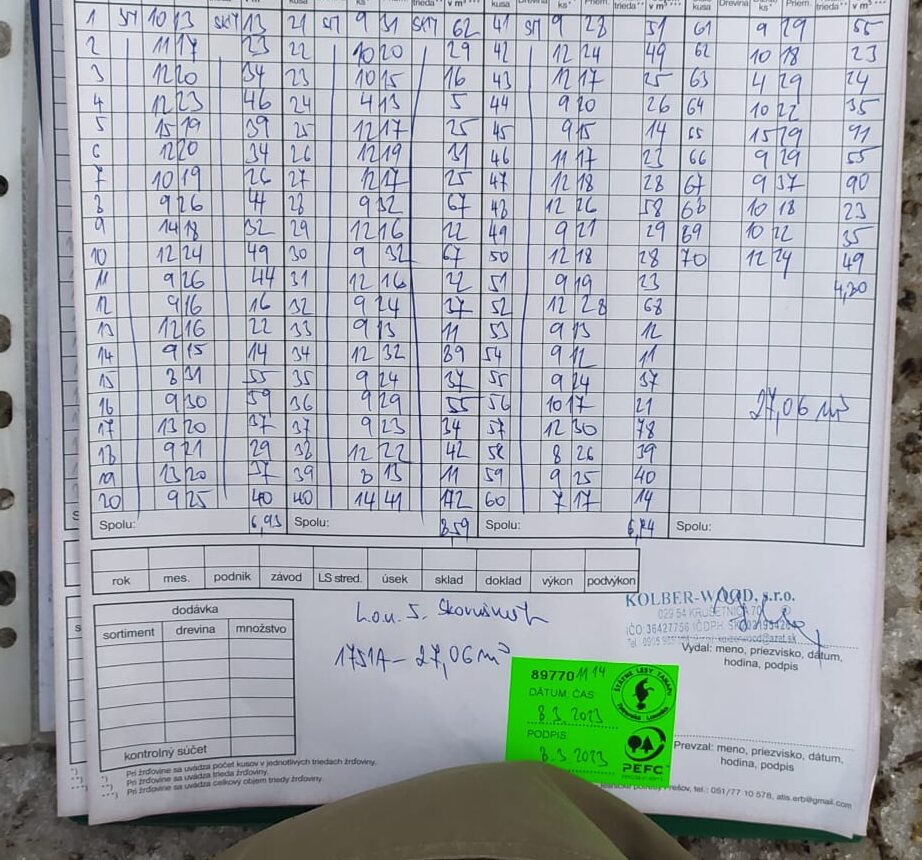 1 SM 10 13 SKM 13 21 SM 9 31 SKM 62 41 SM 9 28 51 61 9 29 55
2 11 17 23 22 10 20 29 42 12 24 49 62 10 18 23
3 12 20 34 23 10 15 16 43 12 17 25 63 4 29 24
4 12 23 46 24 4 13 5 44 9 20 26 64 10 22 35
5 15 19 39 25 12 17 25 45 9 15 14 65 15 29 91
6 12 20 34 26 12 19 31 46 11 17 23 66 9 29 55
7 10 19 26 27 12 17 25 47 12 18 28 67 9 37 90
8 9 26 44 28 9 32 67 48 12 26 58 68 10 18 23
9 14 18 32 29 12 16 22 49 9 21 29 69 10 22 35
10 12 24 49 30 9 32 67 50 12 18 28 70 12 24 49
11 9 26 44 31 12 16 22 51 9 19 23 4,80
12 9 16 16 32 9 24 37 52 12 28 68
13 12 16 22 33 9 13 11 53 9 13 12
14 9 15 14 34 12 32 89 54 9 12 11
15 8 31 55 35 9 24 37 55 9 24 37
16 9 30 59 36 9 29 55 56 10 17 21 27,06 m³
17 13 20 37 37 9 23 34 57 12 30 78
18 9 21 29 38 12 22 42 58 8 26 39
19 13 20 37 39 8 13 11 59 9 25 40
20 9 25 40 40 14 41 172 60 7 17 14
Spolu: 6,93 Spolu: 8,59 Spolu: 6,74 Spolu:
rok mes. podnik závod LS stred. úsek sklad doklad výkon podvýkon
dodávka
sortiment drevina množstvo
kontrolný súčet
KOLBER-WOOD, s.r.o.
029 54 KRUŠETNICA 70
IČO 36427756
Vydal: meno, priezvisko, dátum,
hodina, podpis
1751A – 27,06 m³
89770 1114
DÁTUM, ČAS
8.3.2023
PODPIS:
8.3 2023
ŠTÁTNE LESY TANAPU
PEFC
Prevzal: meno, priezvisko, dátum,
hodina, podpis
*) Pri žrďovine sa uvádza počet kusov v jednotlivých triedach žrďoviny.
**) Pri žrďovine sa uvádza trieda žrďoviny.
***) Pri žrďovine sa uvádza celkový objem triedy žrďoviny.
Prešov, tel.: 051/77 10 578, atis.erb@gmail.com